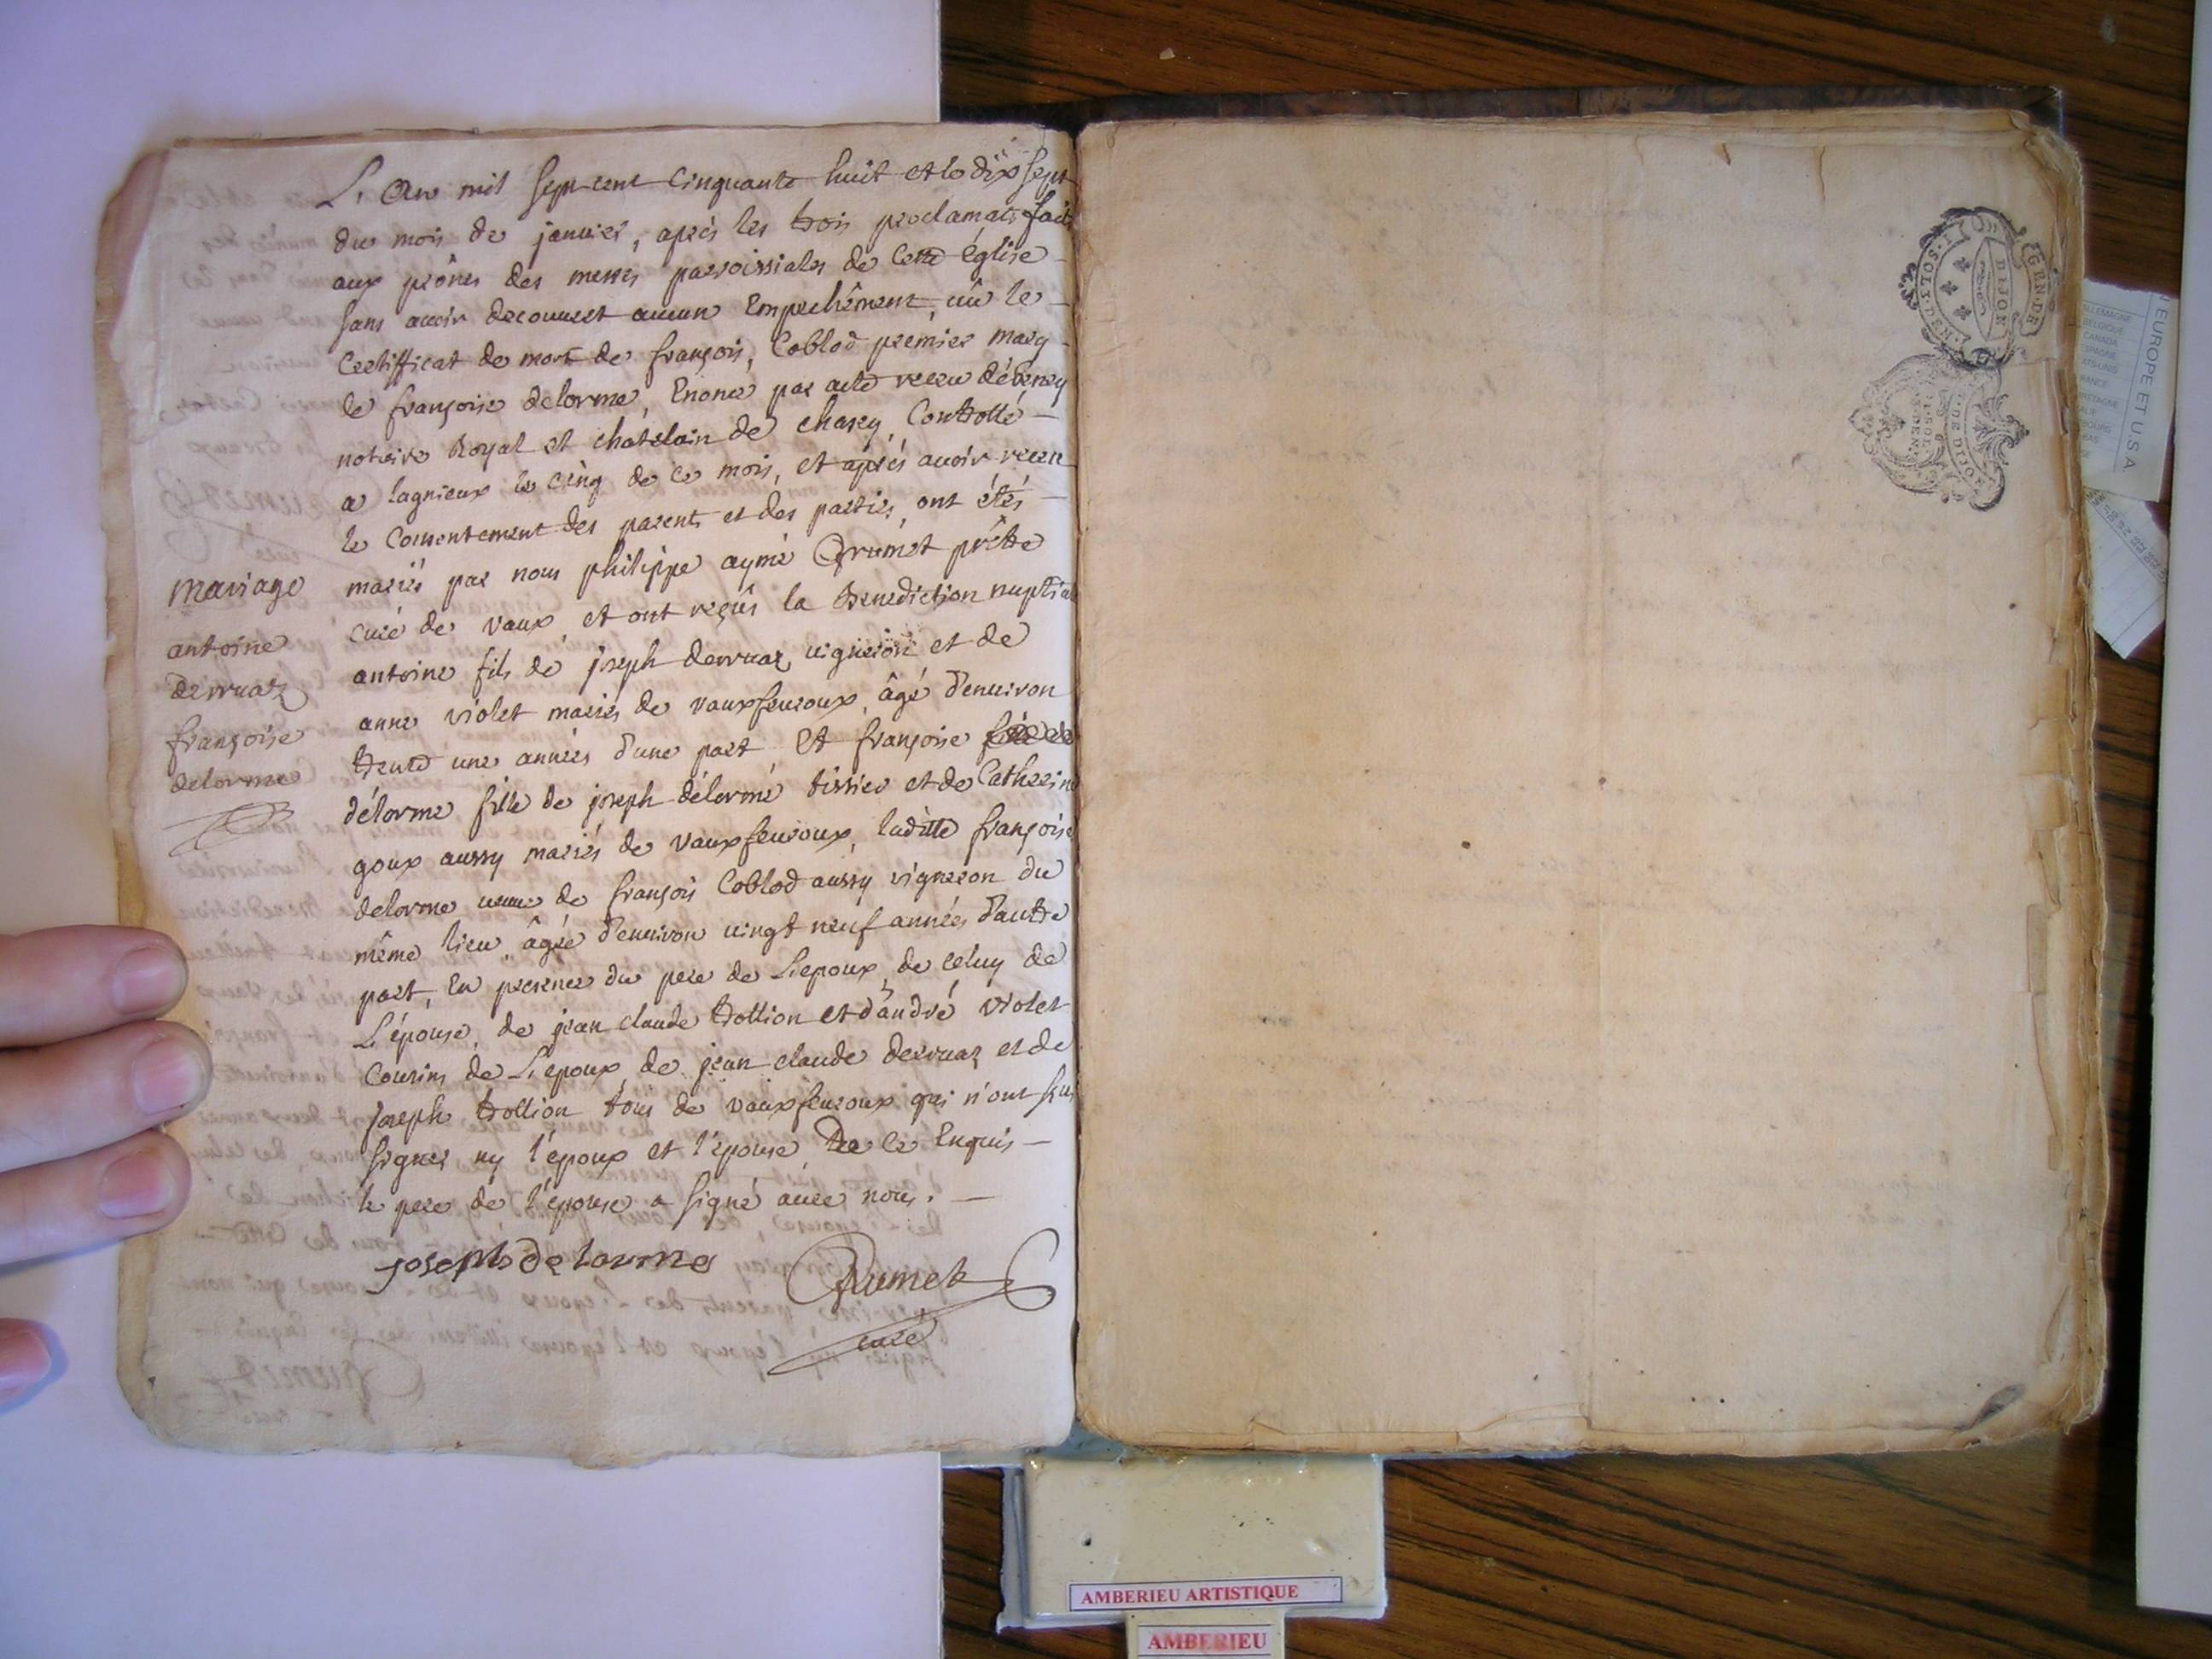 L'An mil sept cent cinquante huit et le dix sept
du mois de janvier, après les trois proclamat. fait
aux prônes des messes parroissiales de cette église
sans avoir decouvert aucun Empechêment, vû le
Certifficat de mort de françois Coblod premier mary
de françoise delorme, Enoncé par acte receu
notaire Royal et chatelain de chasey, Controllé
a lagnieux le cinq de ce mois, et après avoir receu
le Consentement des parents et des parties, ont étés
mariés par nous philippe aymé Grumet prêtre
curé de vaux, et ont reçûs la Benediction nuptial
antoine fils de joseph derruaz vigneron et de
anne violet mariés de vauxfevroux, âgé d'environ
trente une années d'une part Et françoise
délorme fille de joseph délorme tissier et de Catherine
goux aussy mariés de vauxfevroux, laditte françoise
delorme veuve de françois Coblod aussy vigneron du
même lieu âgée d'environ vingt neuf années d'autre
part, En presence du pere de L'epoux, de celuy de
L'épouse, de jean claude trollion et d'andré violet
Cousins de L'epoux, de jean claude derruaz et de
joseph trollion tous de vauxfevroux qui n'ont sçu
signer ny l'époux et l'épouse, de ce Enquis
le pere de l'épouse a signé avec nous.
mariage
antoine
derruaz
françoise
delorme
joseph de lorme
Grumet
curé
DIJON
AMBERIEU ARTISTIQUE
AMBERIEU
EUROPE ET USA
ALLEMAGNE
BELGIQUE
CANADA